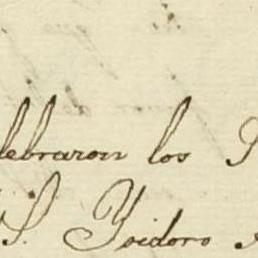 lebraron los
S. Ysidoro